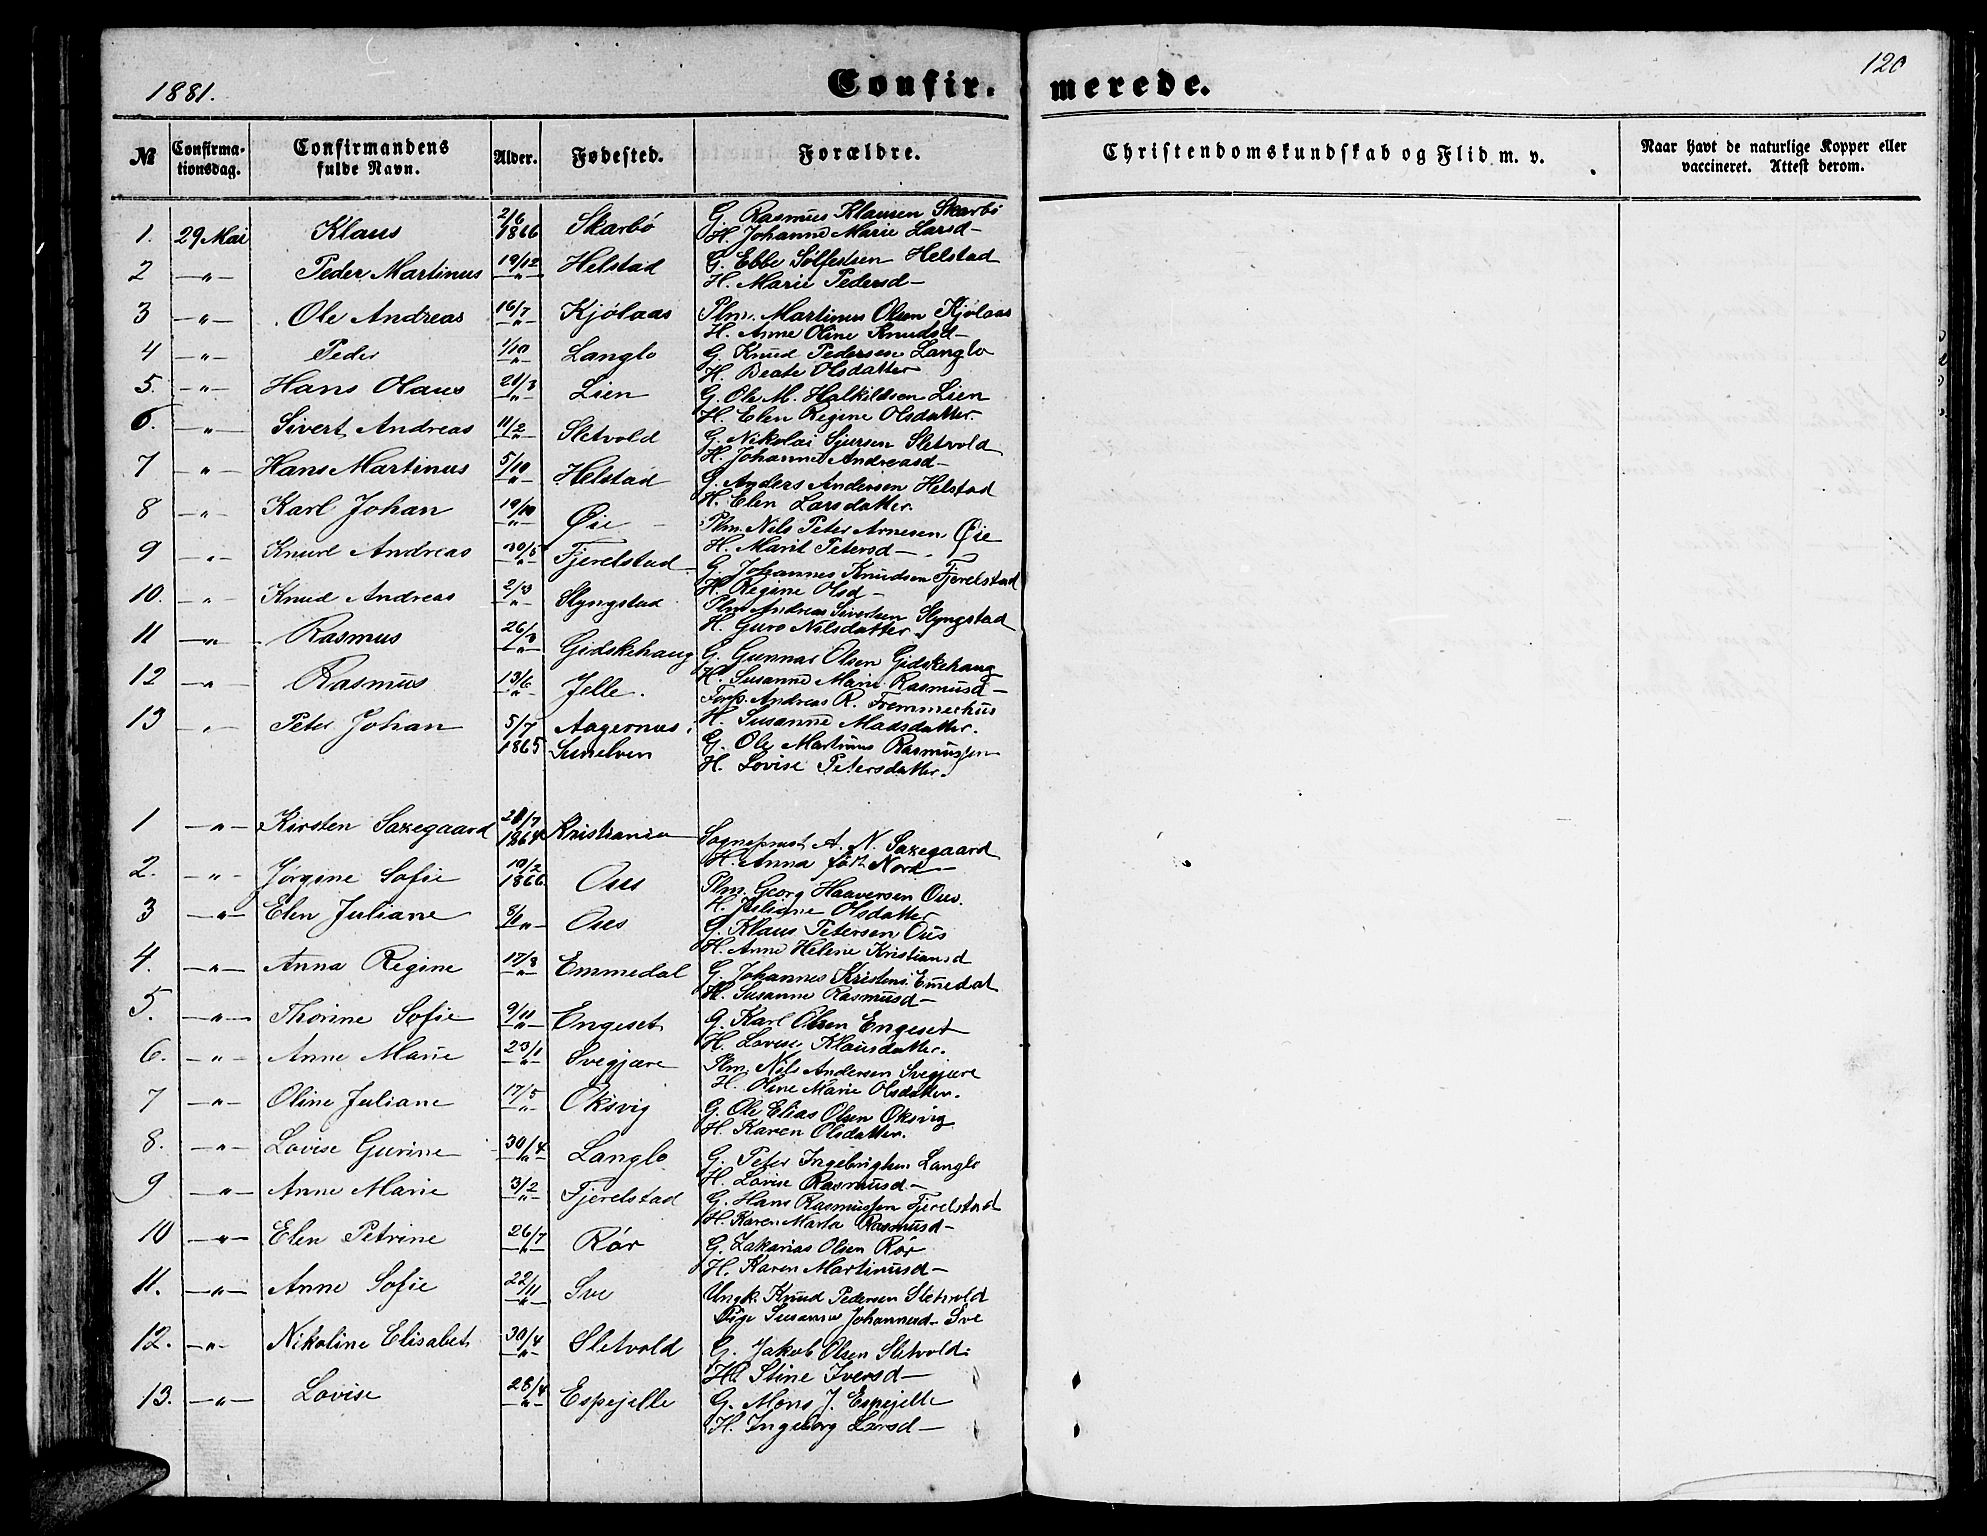 1881.
Confir-
merede.
120
№ Confirma-tionsdag. Confirmandens fulde Navn. Alder. Fødested. Forældre.
Christendomskundskab og Flid m. v.
Naar havt de naturlige Kopper eller vaccineret. Attest derom.
1. 29 Mai Klaus 2/6 1866 Skarbø G. Rasmus Klausen Skarbø
H. Johanne Marie Larsd—
2 —„— Peder Martinus 19/12 —„— Helstad G. Ebbe Sølfestsen Helstad
H. Marie Pedersd—
3 —„— Ole Andreas 16/7 —„— Kjølaas Plm. Martinus Olsen Kjølaas
H. Anne Oline Knudsd—
4 —„— Peder 1/10 —„— Langlo G. Knud Pedersen Langlo
H. Beate Olsdatter
5. —„— Hans Olaus 21/3 —„— Lien G. Ole M. Halkildsen Lien
H. Elen Regine Olsdatter
6. —„— Sivert Andreas 11/2 —„— Sletvold G. Nikolai Sjursen Sletvold
H. Johanne Andreasd—
7 —„— Hans Martinus 5/10 —„— Helstad G. Anders Andersen Helstad
H. Elen Larsdatter.
8 —„— Karl Johan 19/10 —„— Øie Plm. Nils Peter Arnesen Øie
H. Marit Petersd—
9 —„— Knud Andreas 30/5 —„— Fjerelstad G. Johannes Knudsen Fjerelstad
H. Regine Olsd—
10. —„— Knud Andreas 2/3 —„— Slyngstad Plm Andreas Sivertsen Slyngstad
H. Guro Nilsdatter
11 —„— Rasmus 26/ —„— Gidskehaug G. Gunnar Olsen Gidskehaug
H. Susanne Marie Rasmusd—
12 —„— Rasmus 13/6 —„— Jelle. Forp. Andreas R. Fremmerhus
H. Susanne Madsdatter.
13 —„— Peter Johan 5/7 1865 Aagernes i Sunelven G. Ole Martinus Rasmussen
H. Lovise Petersdatter.
1 —„— Kirsten Saxegaard 28/7 1864 Kristiania Sogneprest A. N. Saxegaard
H. Anna født Nord—
2. —„— Jørgine Sofie 19/2 1866 Ous Plm. Georg Haaversen Ous.
H. Juliane Olsdatter
3 —„— Elen Juliane —„— Ous G. Klaus Petersen Ous
H. Anne Helene Kristiansd
4. —„— Anna Regine 17/3 —„— Emmedal G. Johannes Kristens. Emedal
H. Susanne Rasmusd—
5. —„— Thorine Sofie 9/11 —„— Engeset G. Karl Olsen Engeset
H. Lovise Klausdatter.
6. —„— Anne Marie 23/1 —„— Svegjære Plm. Nils Andersen Svegjære
H. Oline Marie Olsdatter.
7 —„— Oline Juliane 17/5 —„— Oksvig G. Ole Elias Olsen Oksvig
H. Karen Olsdatter.
8. —„— Lovise Gurine 30/4 —„— Langlo G. Peter Ingebrigtsen Langlo
H. Lovise Rasmusd—
9 —„— Anne Marie 3/2 —„— Fjerelstad G. Hans Rasmussen Fjerelstad
H. Karen Marta Rasmusd—
10 —„— Elen Petrine 26/7 —„— Rør G. Zakarias Olsen Rør
H. Karen Martinusd—
11. —„— Anne Sofie 22/11 —„— Sve Ungk. Knud Pedersen Sletvold
Pige Susanne Johannesd— Sve
12. —„— Nikoline Elisabet 30/4 —„— Sletvold G. Jakob Olsen Sletvold.
H. Stine Iversd—
13. —„— Lovise 28/4 —„— Espejelle G. Mons J. Espejelle
H. Ingeborg Larsd—